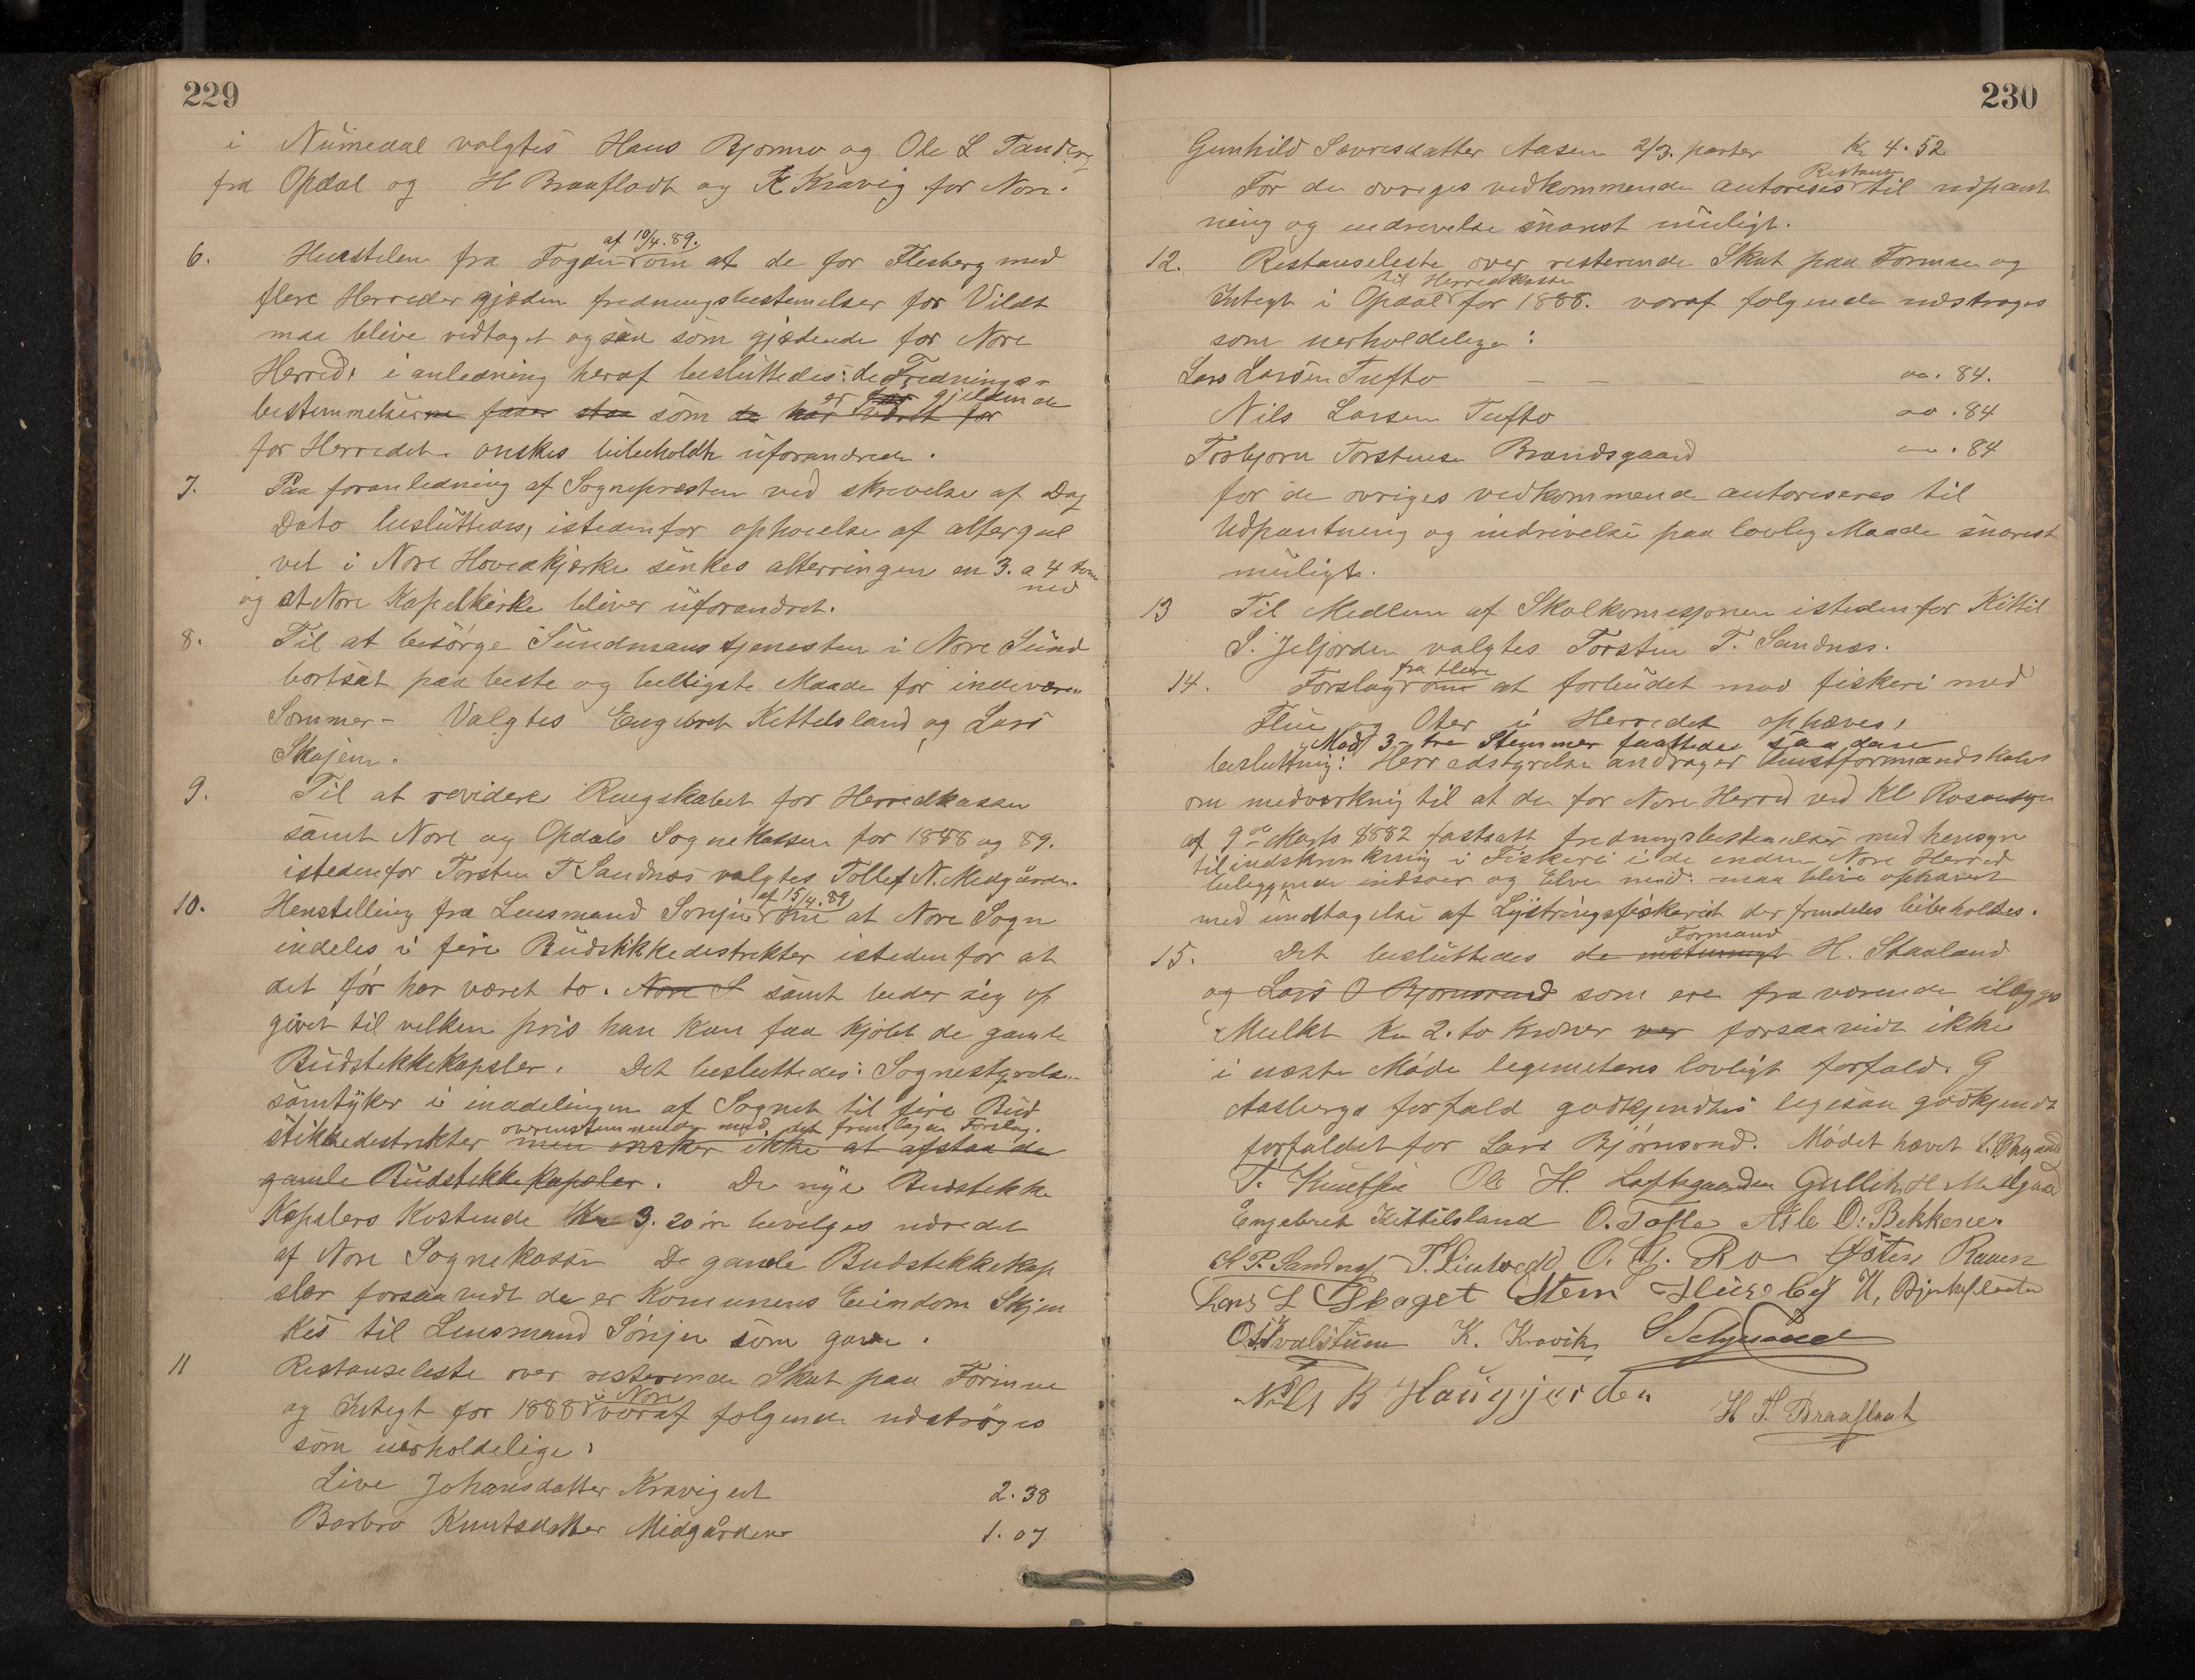 229
i Numedal valgtes Hans Bjornu og Ole L Tandberg
fra Opdal og H Braaflodt og K Kravig for Nore.
6. Henstelen fra Fogden af 10/4.89. om at de for Flesberg med
flere Herreder gjæden fredningsbestemelser for Vildt
maa blive vedtaget ogsaa som gjædende for Nore
Herred, i anledning heraf besluttedes: de Frednings-
bestemmelser som er gjeldende
for Herredet onskes bibeholdt uforandrede.
7. Paa foranledning af Sognepresten ved skrivelse af Dag
Dato besluttedes, istedenfor ophoielse af altergul
vet i Nore Hovedkjerke senkes alterringen en 3. a 4 tom
ned
og at Nore Kapelkirke bliver uforandret.
8. Til at besørge Sundmanstjenesten i Nore Sund
bortsat paa beste og belligste Maade for indeværen
Sommer - Valgtes Engebret Kettelsland og Lars
Skajem.
9. Til at revidere Rengskabet for Herredkassen
samt Nore og Opdals Sognekassen for 1888 og 89.
istedenfor Torsten T Sandnes valgtes Tollef N. Midgården.
10. Henstelling fra Lensmand Sønju af 15/4.89 om at Nore Sogn
indeles i fire Budstikkedestrekter istedenfor at
det før har været to. Nore S samt beder sig op
givet til velken pris han kan faa kjøbt de gamle
Budstekkekapsler. Det besluttedes: Sognestyrelsen
samtyker i inddelingen af Sognet til fire Bud
stikkedestrekter overenstemmende med det fremlagen Forslag.
men onsker ikke at afstaa de
gamle Budstekkekapsler. De nye Budstekke
Kapslers Kostende Kr 3.20 øre bevelges udredet
af Nore Sognekasse De gamle Budstekkekap
sler forsaavedt de er Komunens Eiendom Skjen
kes til Lensmand Sønju som gave.
11 Restanseleste over resterende Skat paa Formue
og Integt for 1888 i Nore voraf folgende udstrøges
som uerholdelige:
Live Johansdatter Kraviget 2.38
Barbro Knutsdatter Midgården 1.07
230
Gunhild Sevresdatter Aasen 2/3. parter Kr 4.52
For de ovreges vedkommende autoreses Restansen til udpant
ning og indrevelse snarest muligt.
12. Restanseleste over resterende Skat paa Formue og
Integt i Opdal til Herredkassen for 1888. voraf folgende udstroges
som uerholdelege:
Lars Larsen Tufto - - 84.
Nils Larsen Tufto .84
Torbjorn Torstensen Brandsgaard .84
for de ovriges vedkommende autoriseres til
Udpantning og indrivelse paa lovleg Maade snarest
muligt.
13 Til Medlem af Skolkomisjonen istedenfor Kittil
S. Jeljorden valgtes Torstin T. Sandnes.
14. Forslag fra flere om at forbudet mod fiskeri med
Flue og Oter i Herredet ophæves,
Mod 3 - tre Stemmer fattedes saadan
beslutning: Herredstyrelsen andrager Amtsformandskabet
om medverkning til at de for Nore Herred ved Kl Resoution
af 9de Marts 1882 fastsatt fredningsbestemelser med hensyn
til indskrenkning i Fiskeri i de inden Nore Herred
beleggende indsoer og Elve med. maa blive ophævet
med undtagelse af Lystringsfiskeriet der fremdeles bibeholdes.
15. Det besluttedes Formand H. Staaland
og Lars O Bjornsrud som ere fraværende ilægges
Mulkt Kr 2. to Kroner ver forsaavidt ikke
i næste Møde legemeteres lovligt forfald. G
Aasberga forfald godkjendtes legesaa godkjendt
forfaldet for Lars Bjørnsrud. Mødet hævet
T. Knutsen Ole H. Loftsgaarden Gullik H Midgaard
Engebret Kittilsland O. Tofte Asle O: Bekkene.
S P. Sandnes T. Lintvedt O. G. Ro Østen Rauen
Lars L Skaget Sten Huseby N. Bjerkeflaata
O. Tvalstuen K. Kravik
Nils B Haugjorden H. H. Braaflaat